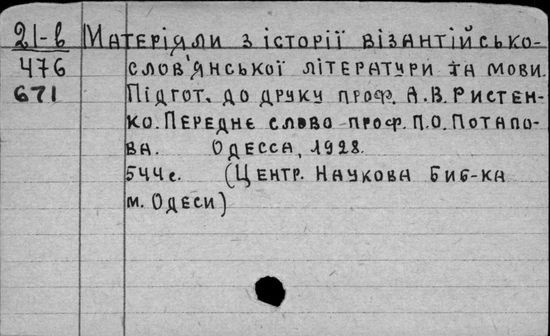 21-в Матеріяли з історії візантійсько-
476 слов'янської літератури та мови.
671 Підгот. до друку проф. А.В. Ристен-
ко. Переднє слово проф. П.О. Потапо-
ва. Одесса, 1928.
544с. (Центр. Наукова Биб-ка
м. Одеси)